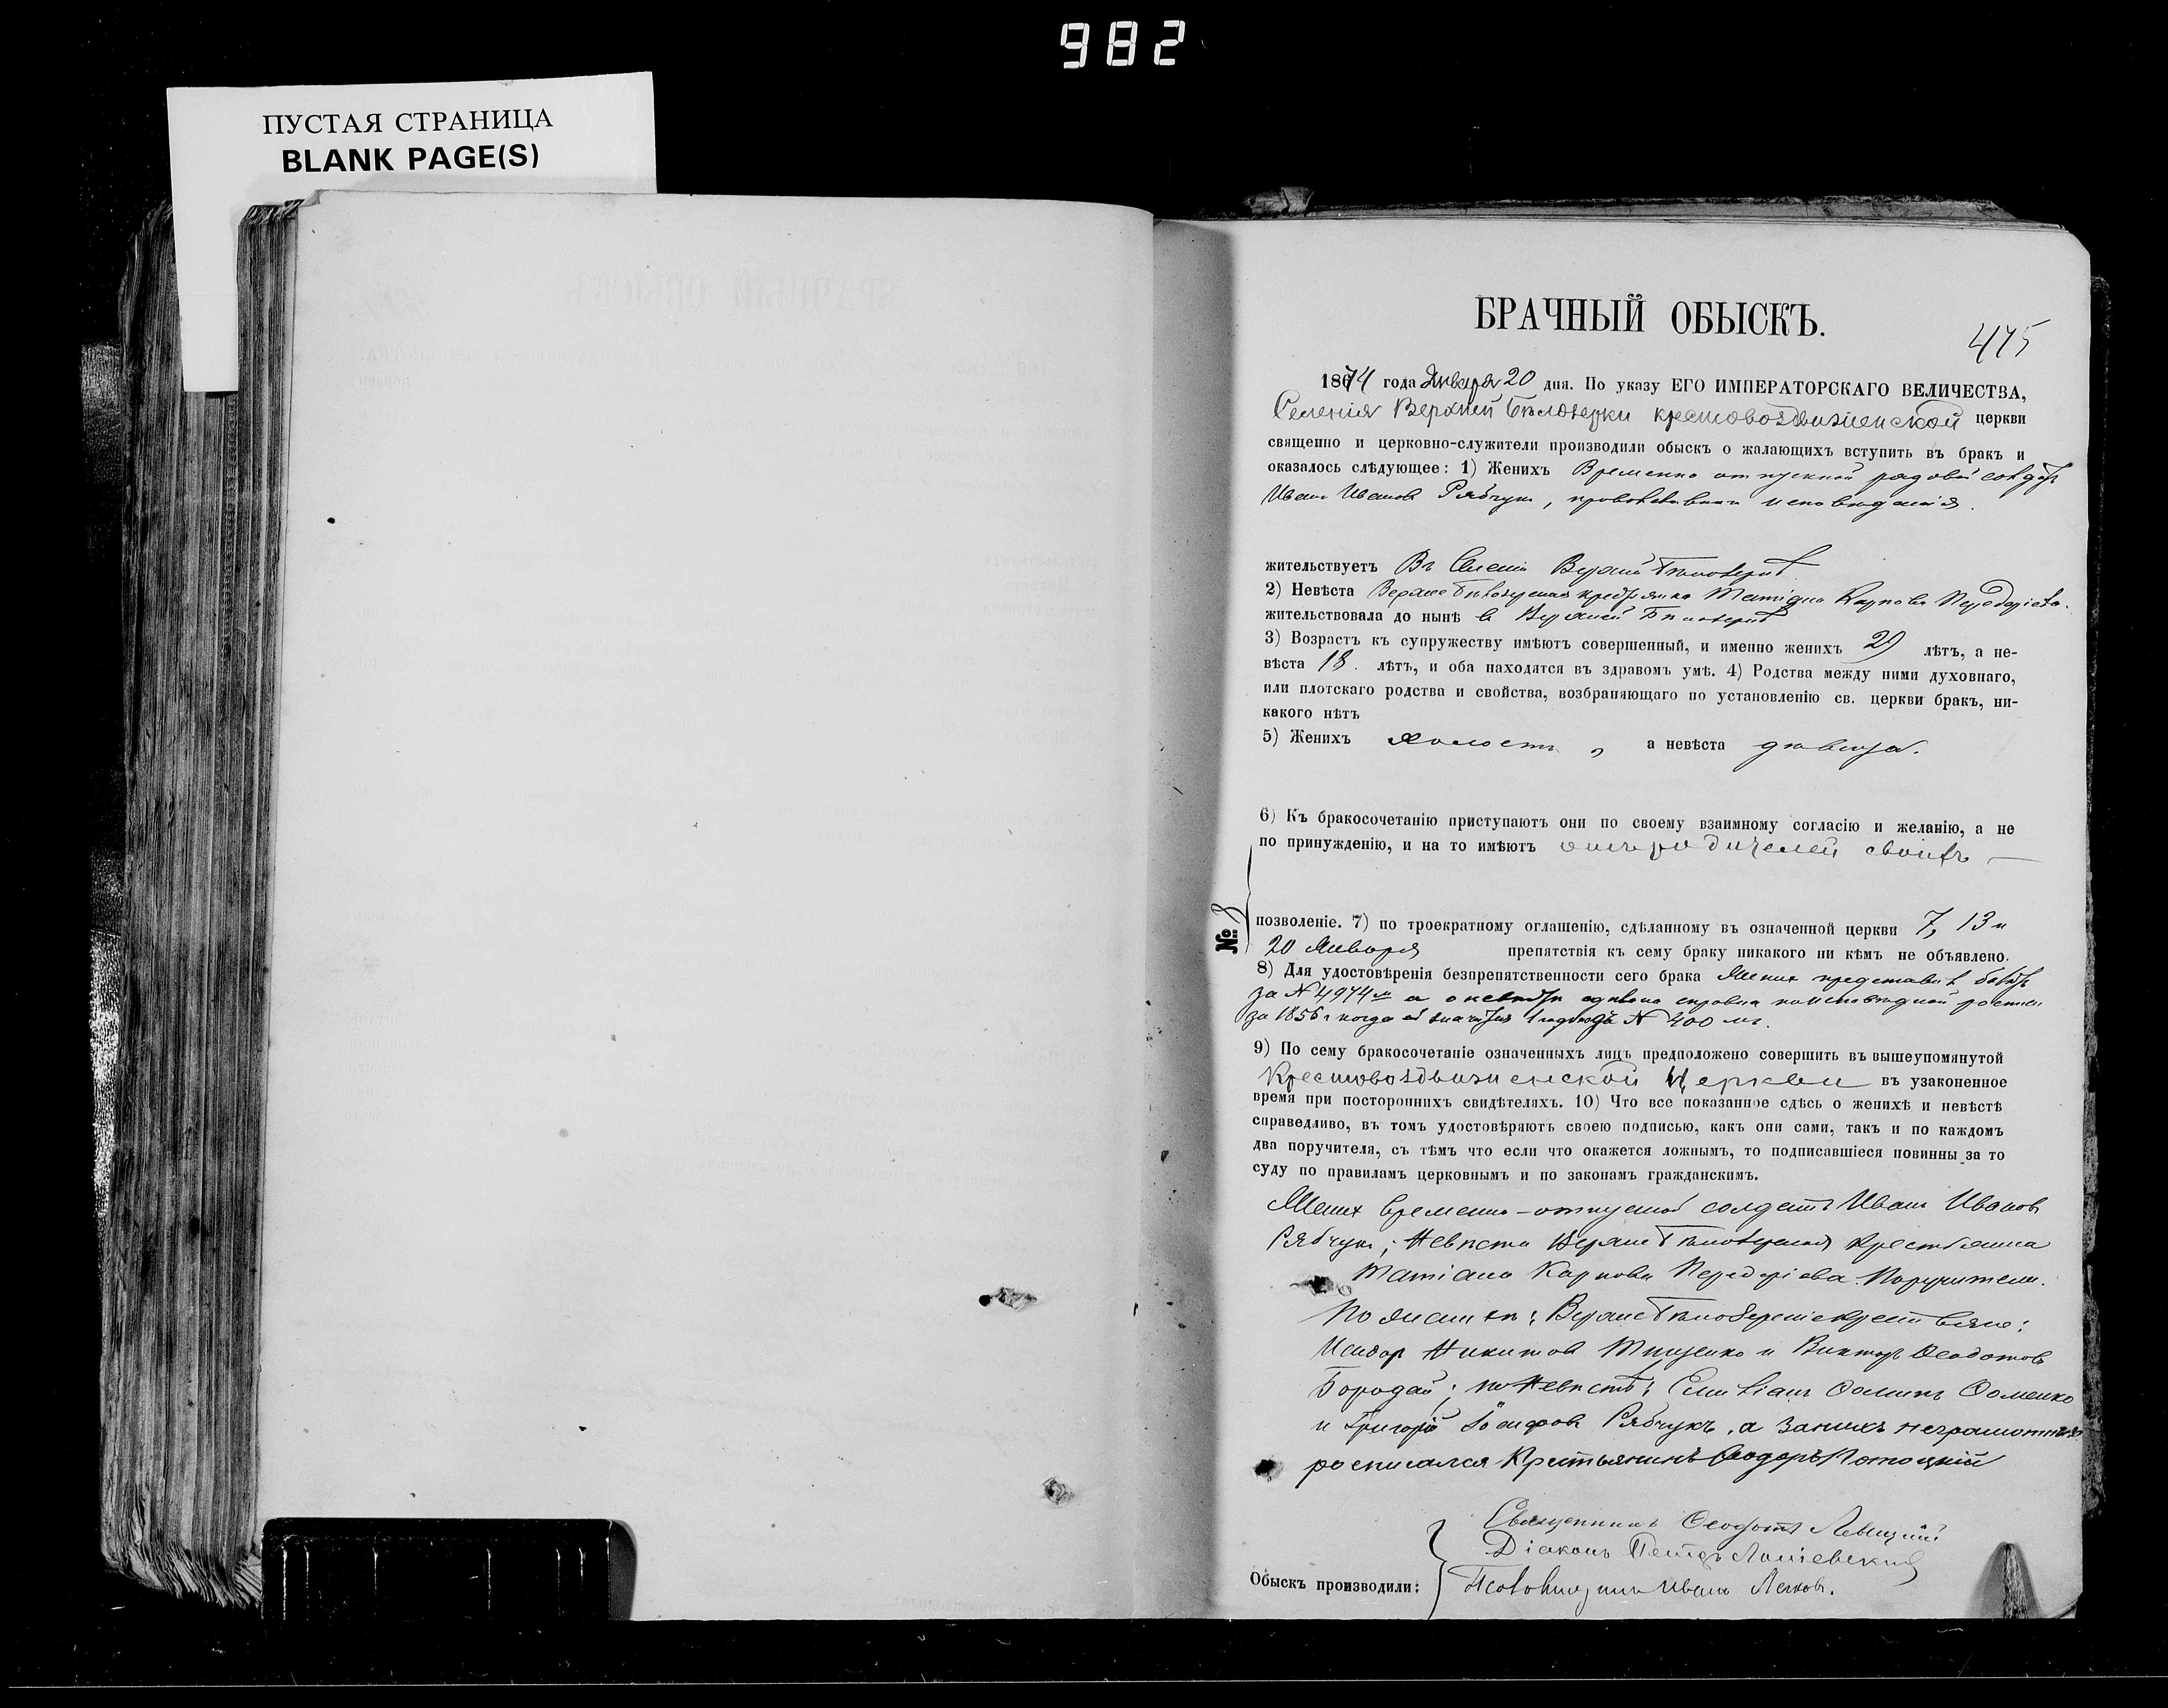 982
ПУСТАЯ СТРАНИЦА
BLANK PAGE(S)
БРАЧНЫЙ ОБЫСКЪ.
475
1874 года Января 20 дня. По указу ЕГО ИМПЕРАТОРСКАГО ВЕЛИЧЕСТВА,
Селенія Верхней Бѣлозерки крестовоздвиженской церкви
священно и церковно-служители производили обыскъ о жалающихъ вступить въ бракъ и
оказалось слѣдующее: 1) Женихъ Временно отпускной рядовой солдатъ
Иванъ Ивановъ Рябчукъ, православнаго исповѣданія.
жительствуетъ Въ Селеніи Верхней Бѣлозеркѣ
2) Невѣста Верхне Бѣлозерская крестьянка Татіана Карпова Передеріева.
жительствовала до нынѣ въ Верхней Бѣлозеркѣ
3) Возрастъ къ супружеству имѣютъ совершенный, и именно женихъ лѣтъ, а не-
вѣста 18. лѣтъ, и оба находятся въ здравомъ умѣ. 4) Родства между ними духовнаго,
или плотскаго родства и свойства, возбраняющаго по установленію св. церкви бракъ, ни-
какого нѣтъ
5) Женихъ холостъ, а невѣста дѣвица.
6) Къ бракосочетанію приступаютъ они по своему взаимному согласію и желанію, а не
по принужденію, и на то имѣютъ отъ родителей своихъ —
№
позволеніе. 7) по троекратному оглашенію, сдѣланному въ означенной церкви 7, 13 и
20 Января препятствія къ сему браку никакого ни кѣмъ не объявлено.
8) Для удостовѣренія безпрепятственности сего брака Женихъ представилъ билетъ
за № 4974 а о невѣстѣ справка исповѣдной росписи
за 1856 г. когда значится 1 годъ № 400
9) По сему бракосочетаніе означенныхъ лицъ предположено совершить въ вышеупомянутой
Крестовоздвиженской Церкви въ узаконенное
время при постороннихъ свидѣтеляхъ. 10) Что все показанное сдѣсь о женихѣ и невѣстѣ
справедливо, въ томъ удостовѣряютъ своею подписью, какъ они сами, такъ и по каждомъ
два поручителя, съ тѣмъ что если что окажется ложнымъ, то подписавшіеся повинны за то
суду по правиламъ церковнымъ и по законамъ гражданскимъ.
Женихъ временно-отпускной солдатъ Иванъ Ивановъ
Рябчукъ; Невѣста Верхне Бѣлозерская крестьянка
Татіана Карпова Передеріева. Поручители.
По женихѣ: Верхне Бѣлозерскіе крестьяне:
Исидоръ Никитовъ Тищенко и Викторъ Ѳеодотовъ
Бородай; по Невѣстѣ: Емиліанъ Ѳоминъ Ѳоменко
и Григорій Іосифовъ Рябчукъ, а за нихъ неграмотныхъ
росписался Крестьянинъ Ѳеодоръ Потоцкій
Священникъ Ѳеодотъ Левицкій
Діаконъ Петръ
Обыскъ производили: Псаломщикъ Иванъ